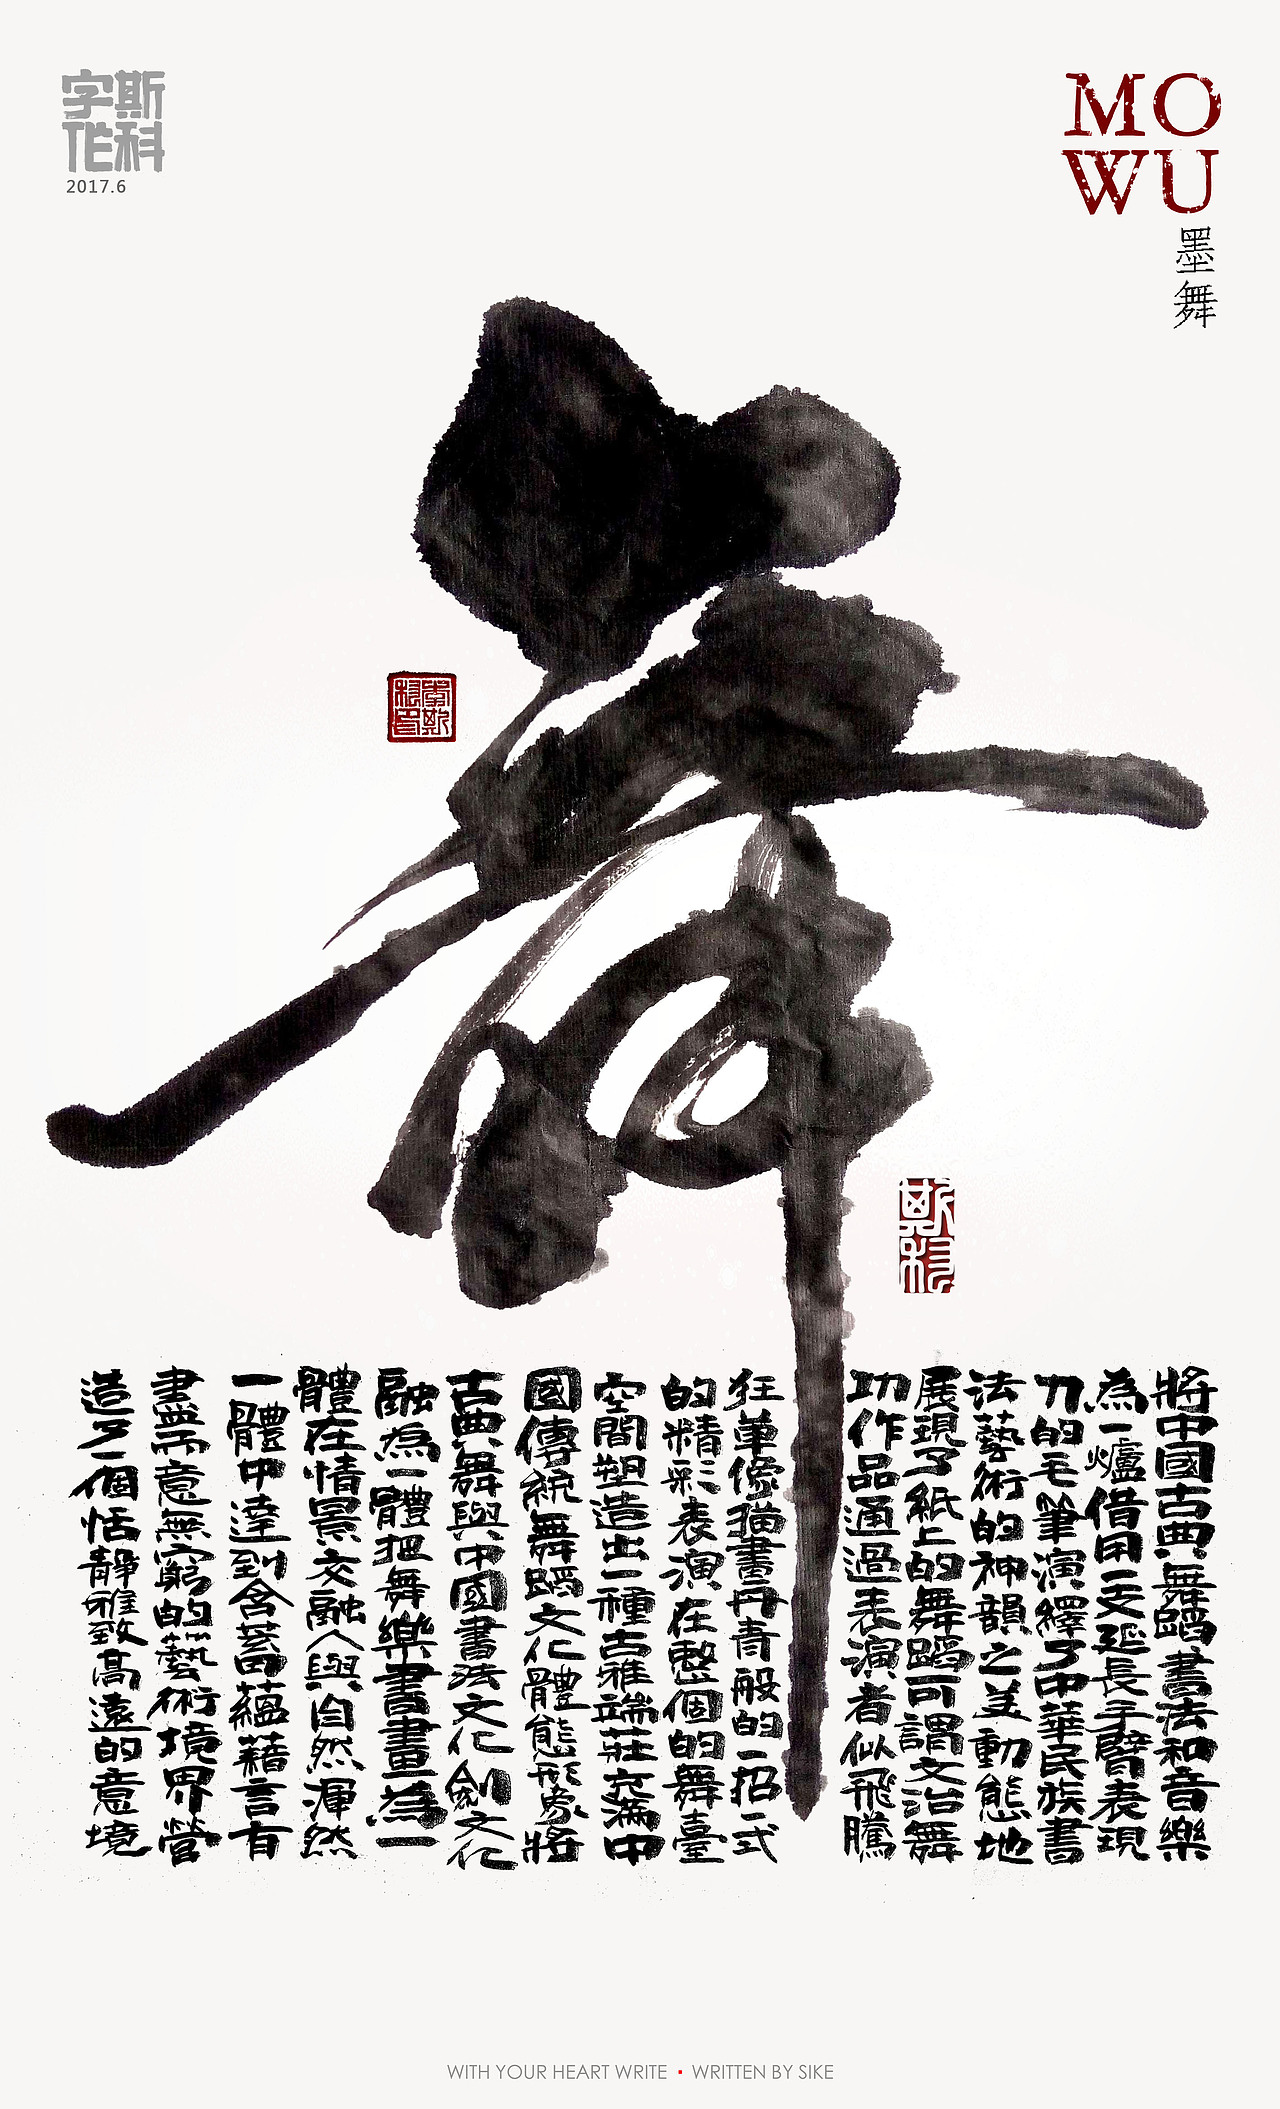 斯科
字作
2017.6
MO
WU
墨舞
舞
斯科
將中國古典舞蹈書法和音樂
為一爐借用一支延長手臂表現
力的毛筆演繹了中華民族書
法藝術的神韻之美動態地
展現了紙上的舞蹈可謂文治舞
功作品通過表演者似飛騰
狂草像描畫丹青般的一招一式
的精彩表演在整個的舞臺
空間塑造出一種古雅端莊充滿中
國傳統舞蹈文化體態形象將
古典舞與中國書法文化劍文化
融為一體把舞樂書畫為一
體在情景交融人與自然渾然
一體中達到含蓄蘊藉言有
盡而意無窮的藝術境界營
造了一個恬靜雅致高遠的意境
WITH YOUR HEART WRITE · WRITTEN BY SIKE